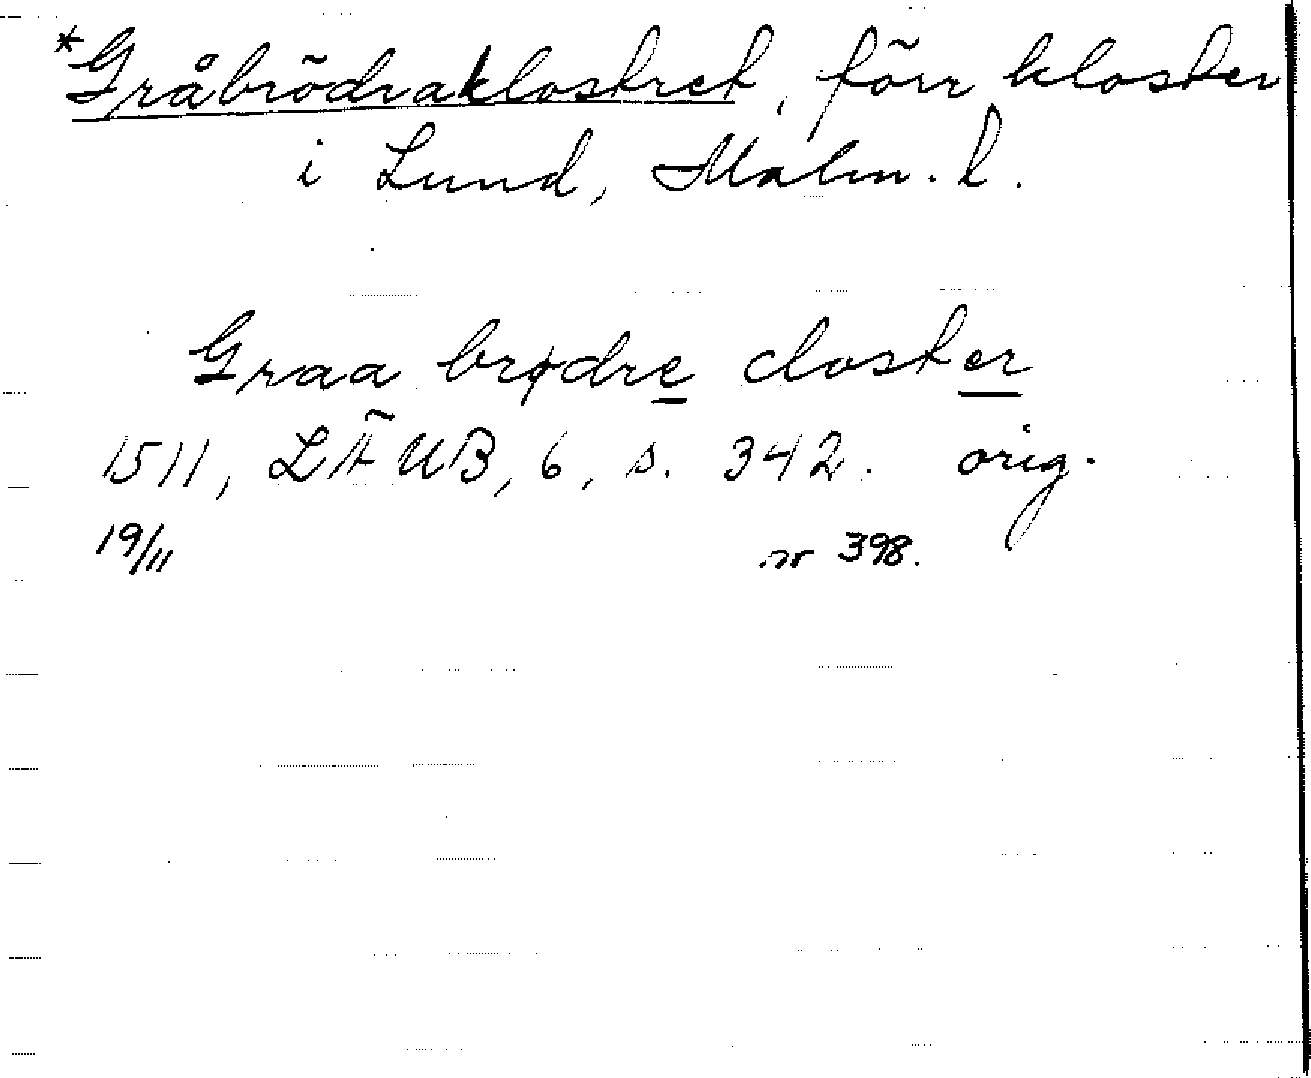 *Gråbrödraklostret, förr kloster
i Lund, Malm. l.
Graa brødre closter
1511, LÄUB, 6, s. 342. orig.
19/11 nr 398.